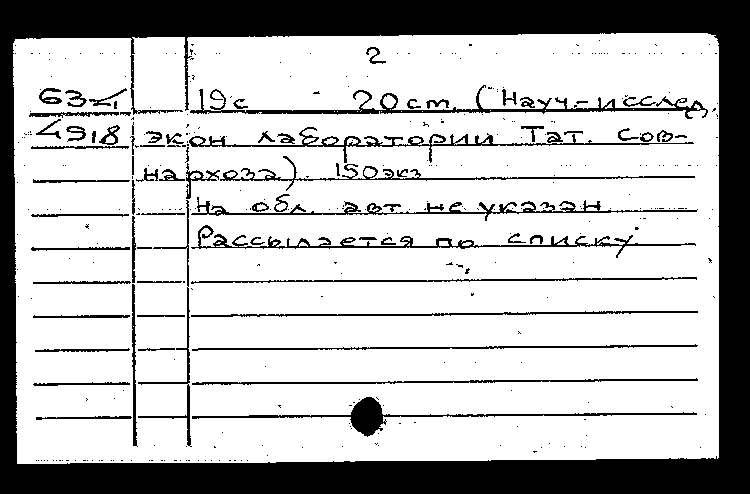 2
63-4 19с 20 ст. (Науч-исслед.
4918 экон лаборатории Тат. Сов-
нархоза). 150экз
На обл. авт не указан
Рассылается по списку